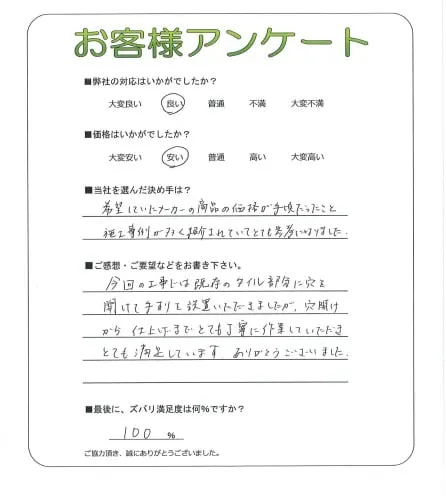 お客様アンケート
■弊社の対応はいかがでしたか？
大変良い 良い 普通 不満 大変不満
■価格はいかがでしたか？
大変安い 安い 普通 高い 大変高い
■当社を選んだ決め手は？
希望していたメーカーの商品の価格が手頃だったこと
施工事例が多く紹介されていてとても参考になりました。
■ご感想・ご要望などをお書き下さい。
今回の工事では既存のタイル部分に穴を
開けて手すりを設置いただきましたが、穴開け
から仕上げまでとても丁寧に作業していただき
とても満足しています ありがとうございました。
■最後に、ズバリ満足度は何%ですか？
100 %
ご協力頂き、誠にありがとうございました。